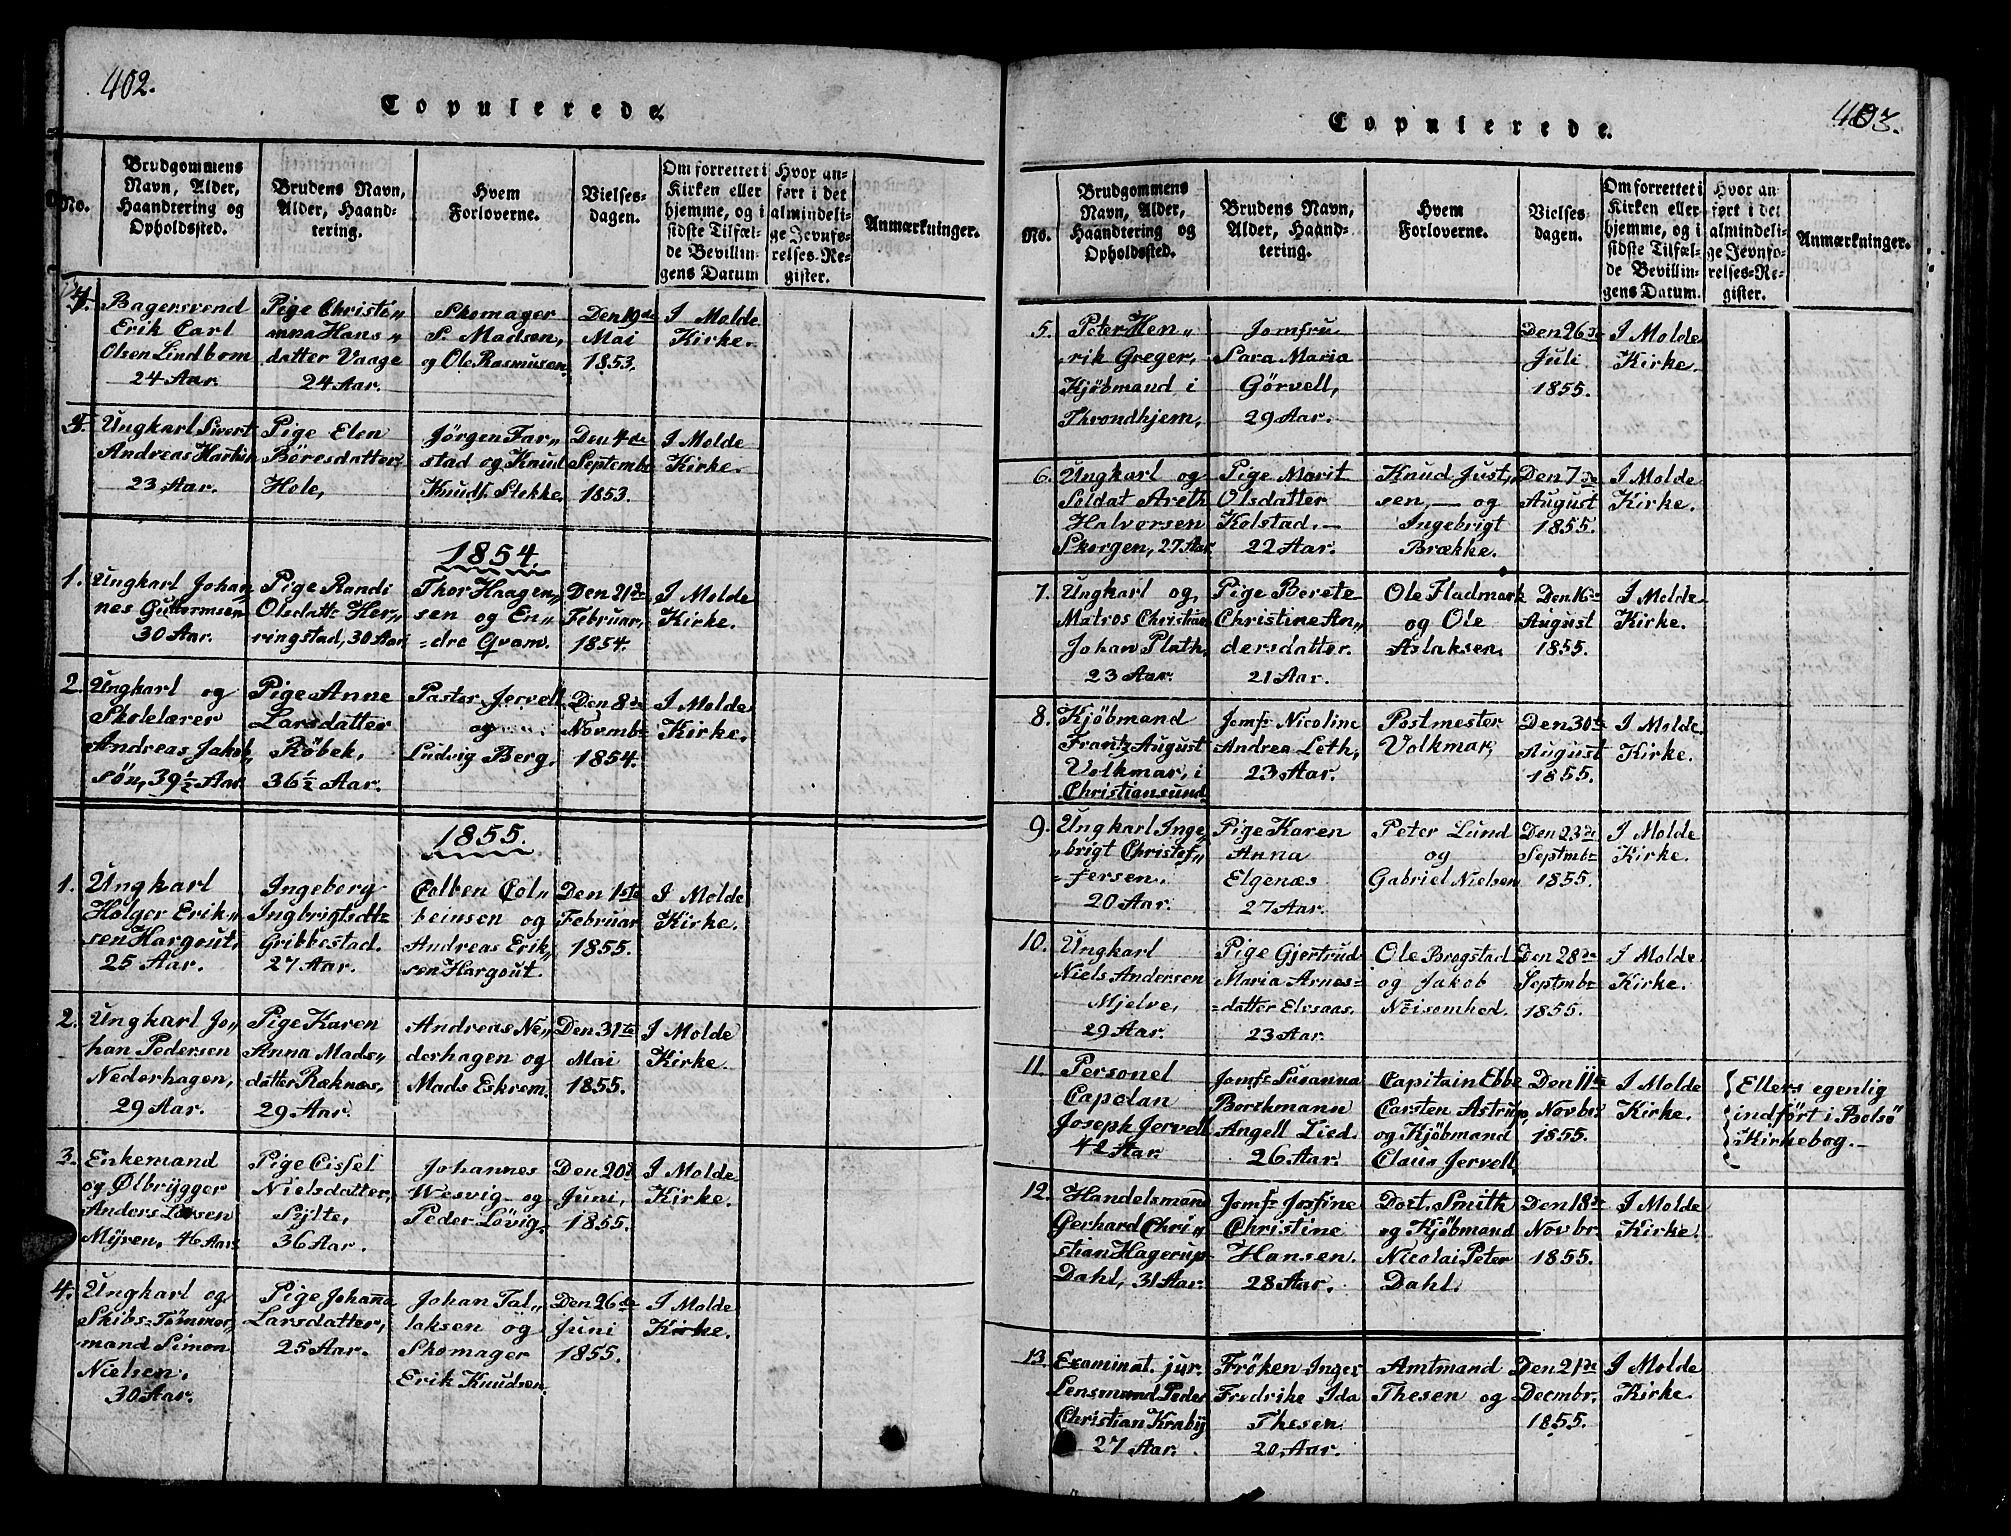 402.
Copulerede.
No.
Brudgommens
Navn, Alder,
Haandtering og
Opholdssted.
Brudens Navn,
Alder, Haand-
tering.
Hvem
Forloverne.
Vielses-
dagen.
Om forrettet i
Kirken eller
hjemme, og i
sidste Tilfæl-
de Bevillin-
gens Datum
Hvor an-
ført i det
almindeli-
ge Jevnfø-
relses-Re-
gister.
Anmærkninger.
Bagersvend
Erik Carl
Olsen Lindbom
24 Aar.
Pige Christi„
anna Hans„
datter Vaage
24 Aar.
Skomager
S. Madsen,
og Ole Rasmusen.
Den 19de
Mai
1853.
I Molde
Kirke.
Ungkarl Sivert
Andreas Martin
23 Aar.
Pige Elen
Børesdatter,
Hole,
Jörgen Far„
stad og Knud
Knuds. Stokke.
Den 4de
Septembr
1853.
I Molde
Kirke.
1854.
1.
Ungkarl Johan„
nes Guttormsen
30 Aar.
Pige Randi
Olsdattr Her„
ringstad, 30 Aar.
Thor Haagen„
sen og En„
=dre Qvam.
Den 21de
Februar,
1854.
I Molde
Kirke.
2.
Ungkarl og
Skolelærer
Andreas Jakob„
sön, 39½ Aar.
Pige Anne
Larsdatter
Röbek,
36½ Aar.
Pastor Jervell
og
Ludvig Berg.
Den 8de
Novmbr
1854.
I Molde
Kirke.
1855.
1.
Ungkarl
Holger Erik„
sen Hargout,
25 Aar.
Ingeborg
Ingbrigtsdtr
Gribbestad.
27 Aar.
Colben Col„
beinsen og
Andreas Erik„
sen Hargout.
Den 1ste
Februar
1855.
I Molde
Kirke.
2.
Ungkarl Jo„
han Pedersen
Nederhagen,
29 Aar.
Pige Karen
Anna Mads„
datter Ræknæs,
29 Aar.
Andreas Ne„
derhagen og
Mads Eskrem.
Den 31te
Mai
1855.
I Molde
Kirke.
3.
Enkemand
og Ølbrygger
Anders Larsen
Myren, 46 Aar.
Pige Cissel
Nielsdatter,
Sylte,
36 Aar.
Johannes
Wesvig og
Peder Lövig.
Den 20d
Juni,
1855.
I Molde
Kirke.
4.
Ungkarl og
Skibs=Tömmer„
mand Simon
Nielsen.
30 Aar.
Pige Johana
Larsdatter,
25 Aar.
Johan Tal„
laksen og
Skomager
Erik Knudsen.
Den 26de
Juni
1855.
I Molde
Kirke.
403.
Copulerede.
No.
Brudgommens
Navn, Alder,
Haandtering og
Opholdssted.
Brudens Navn,
Alder, Haand-
tering.
Hvem
Forloverne.
Vielses-
dagen.
Om forrettet i
Kirken eller
hjemme, og i
sidste Tilfæl-
de Bevillin-
gens Datum.
Hvor an-
ført i det
almindeli-
ge Jevnfo-
relses-Re-
gister.
Anmærkninger.
5.
Peter Hen„
rik Greger,
Kjöbmand i
Throndhjem,
Jomfru
Sara Maria
Görvell,
29 Aar.
Den 26de
Juli
1855.
I Molde
Kirke.
6.
Ungkarl og
Soldat Areth
Halvorsen
Skorgen, 27 Aar
Pige Marit
Olsdatter
Kolstad.—
22 Aar.
Knud Just„
sen,— og
Ingebrigt
Brække.
Den 7de
August
1855.
I Molde
Kirke.
7.
Ungkarl og
Matros Christian
Johan Plath,
23 Aar.
Pige Berete
Christine An„
dersdatter.
21 Aar.
Ole Fladmark
og Ole
Aslaksen.
Den 16de
August
1855.
I Molde
Kirke.
8.
Kjöbmand
Frantz August
Volkmar, i
Christiansund
Jomfr Nicoline
Andrea Leth,
23 Aar.
Postmester
Volkmar,
Den 30te
August
1855.
I Molde
Kirke.
9.
Ungkarl Inge„
„brigt Christof„
=fersen.
20 Aar.
Pige Karen
Anna
Elgenæs
27 Aar.
Peter Lund
og
Gabriel Nielsen
Den 23de
Septmbr
1855.
I Molde
Kirke.
10.
Ungkarl
Niels Andersen
Mjelve,
29 Aar.
Pige Gjertrud
Maria Arnes=
=datter Elvsaas.
23 Aar.
Ole Brogstad
og Jakob
Nöisomhed.
Den 28de
Septmbr
1855.
I Molde
Kirke.
11.
Personel
Capelan
Joseph Jervell
42 Aar.
Jomfr Susanna
Borchmann
Angell Lied.
26 Aar.
Capitain Ebbe
Carsten Astrup,
og Kjöbmand
Claus Jervell
Den 11te
Novbr
1855.
I Molde
Kirke.
Ellers egenlig
indfört i Bolsö
Kirkebog.—
12.
Handelsmand
Gerhard Chri„
stian Hagerup
Dahl, 31 Aar.
Jomfr Josfine
Christine
Hansen.
28 Aar.
Doct. Smith
og Kjöbmand
Nicolai Peter
Dahl.
Den 18de
Novbr.
1855.
I Molde
Kirke.
13.
Examinat. jur.
Lensmand Peder
Christian Kraby
27 Aar.
Fröken Inger
Fredrike Ida
Thesen
20 Aar.
Amtmand
Thesen og
Den 21de
Decmbr.
1855.
I Molde
Kirke.